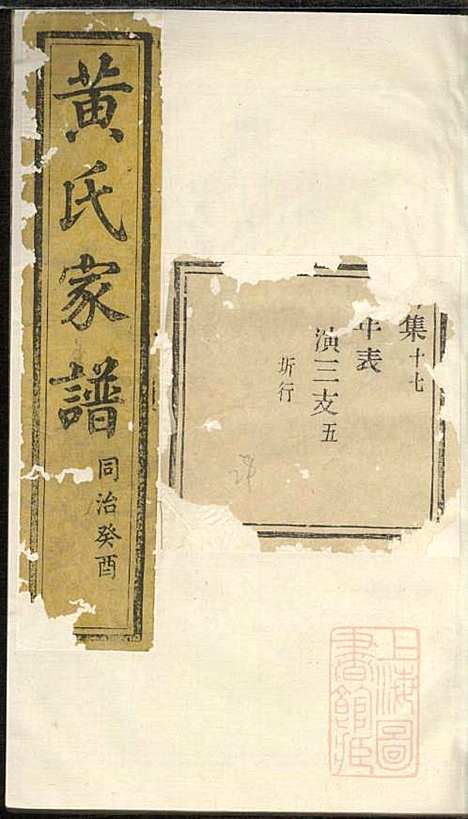 黄氏家譜
同治癸酉
集十七
年表
演三支五
圻行
上海圖
書館藏